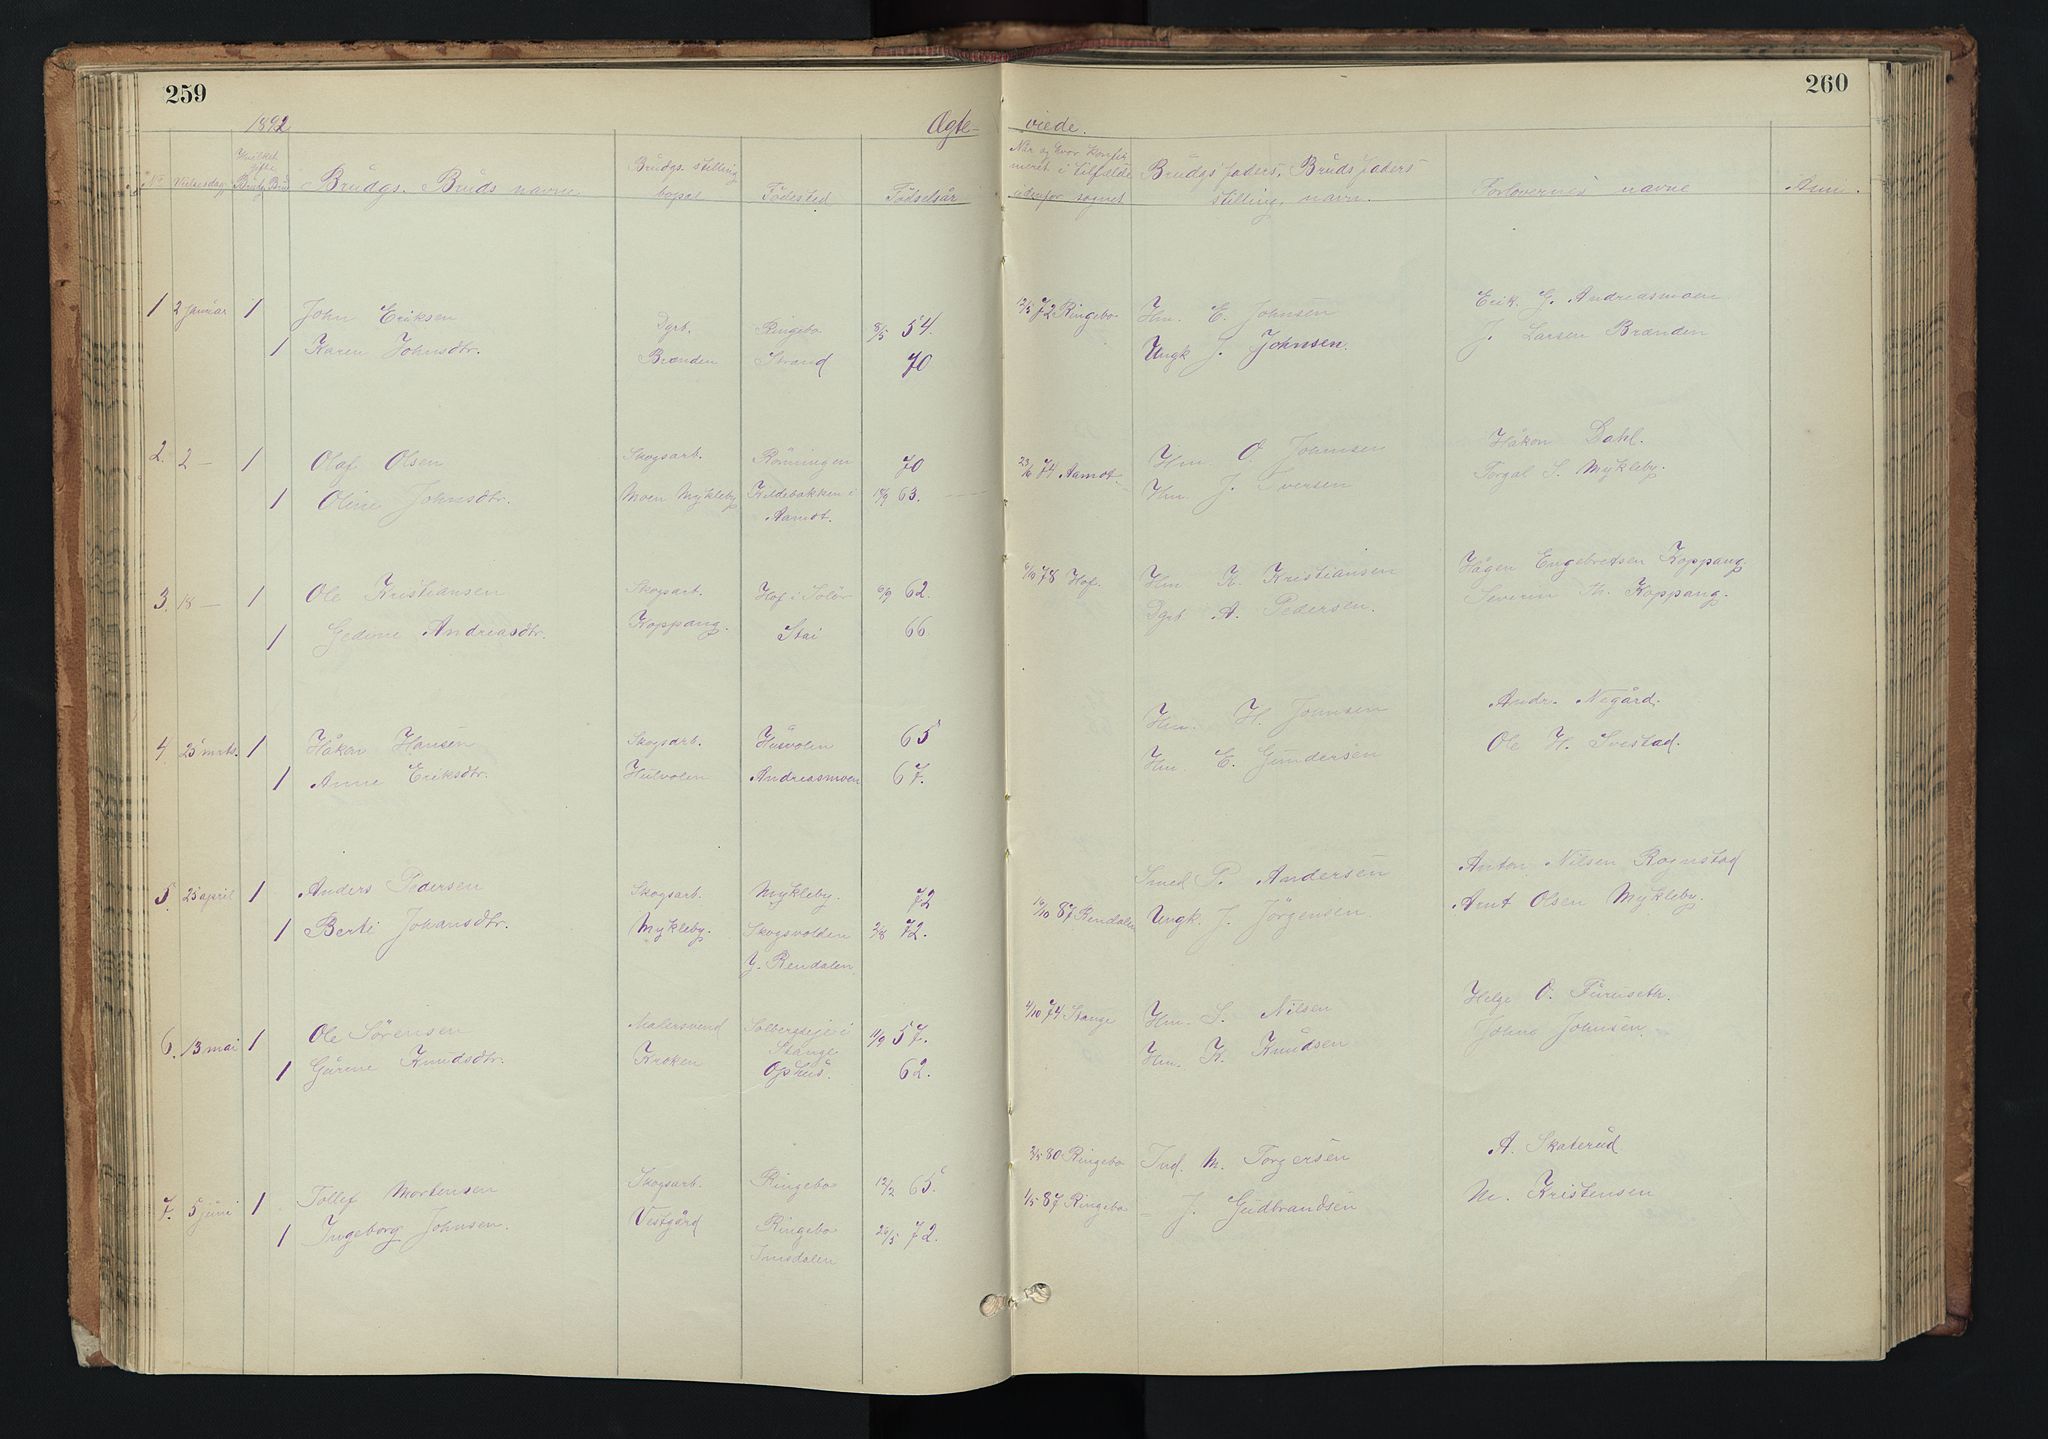 259
260
1892
Ægte-
viede.
No
Vielsesdag
Hvilket gifte
Brudg Brud
Brudgs. Bruds navne
Brudgs. stilling
bopæl
Fødestad
Fødselsår
Når og hvor konfir
meret i tilfælde
udenfor sognet
Brudgs faders, Bruds faders
stilling, navn.
Forlovernes navne
Anm.
1 2 Januar 1 John Eriksen Dgrb. Ringebo 8/5 54. 12/5 72 Ringebo Hm. E. Johnsen Erik G. Andreasmoen
1 Karen Johnsdtr. Brænden Strand 70 Ungk J. Johnsen. J. Larsen Brænden
2. 2 — 1 Olaf Olsen Skogsarb. Rönningen 70 Hm. O. Johnsen Håkon Dahl.
1 Oline Johnsdtr. Moen Mykleby Kildebakken i 18/9 63. 23/6 74 Aamot Hm. J. Iversen Torgal S. Mykleby.
Aamot.
3. 18 — 1 Ole Kristiansen Skogsarb. Hof i Solör 6/9 62. 6/10 78 Hof. Hm K. Kristiansen Hågen Engebretsen Koppang.
1 Gedine Andreasdtr. Koppang. Stai 66 Dgrb A. Pedersen. Severin Th. Koppang.
4 25 mrts. 1 Håkon Hansen Skogsarb. Husvolen 65 Hm. H. Johnsen Andr. Negård.
1 Anne Eriksdtr. Hulvolen Andreasmoen 67. Hm E. Gundersen Ole H. Svestad.
5. 25 april 1 Anders Pedersen Skogsarb. Mykleby. 72 Smed P. Andersen Anton Nilsen Rognstad
1 Berte Johansdtr. Mykleby. Skogsvolden 2/8 72. 16/10 87 Rendalen Ungk J. Jörgensen Amt Olsen Mykleby.
Y. Rendalen
6. 13 mai 1 Ole Sörensen Malersvend Solbergseje i 11/9 57. 4/10 74 Stange Hm. S. Nilsen Helge O. Furuseth.
Stange
1 Gurine Knudsdtr. Kroken Ophus. 62. Hm. K. Knudsen Johns Johnsen
7. 5 juni 1 Tollef Mortensen Skogsarb. Ringebo 12/2 65. 2/5 80 Ringebo Ind. M. Torgersen A. Skaterud
1 Ingeborg Johnsen. Vestgård Ringebo 20/5 72. 1/5 87 Ringebo — J. Gudbrandsen M. Kristensen
Imsdalen